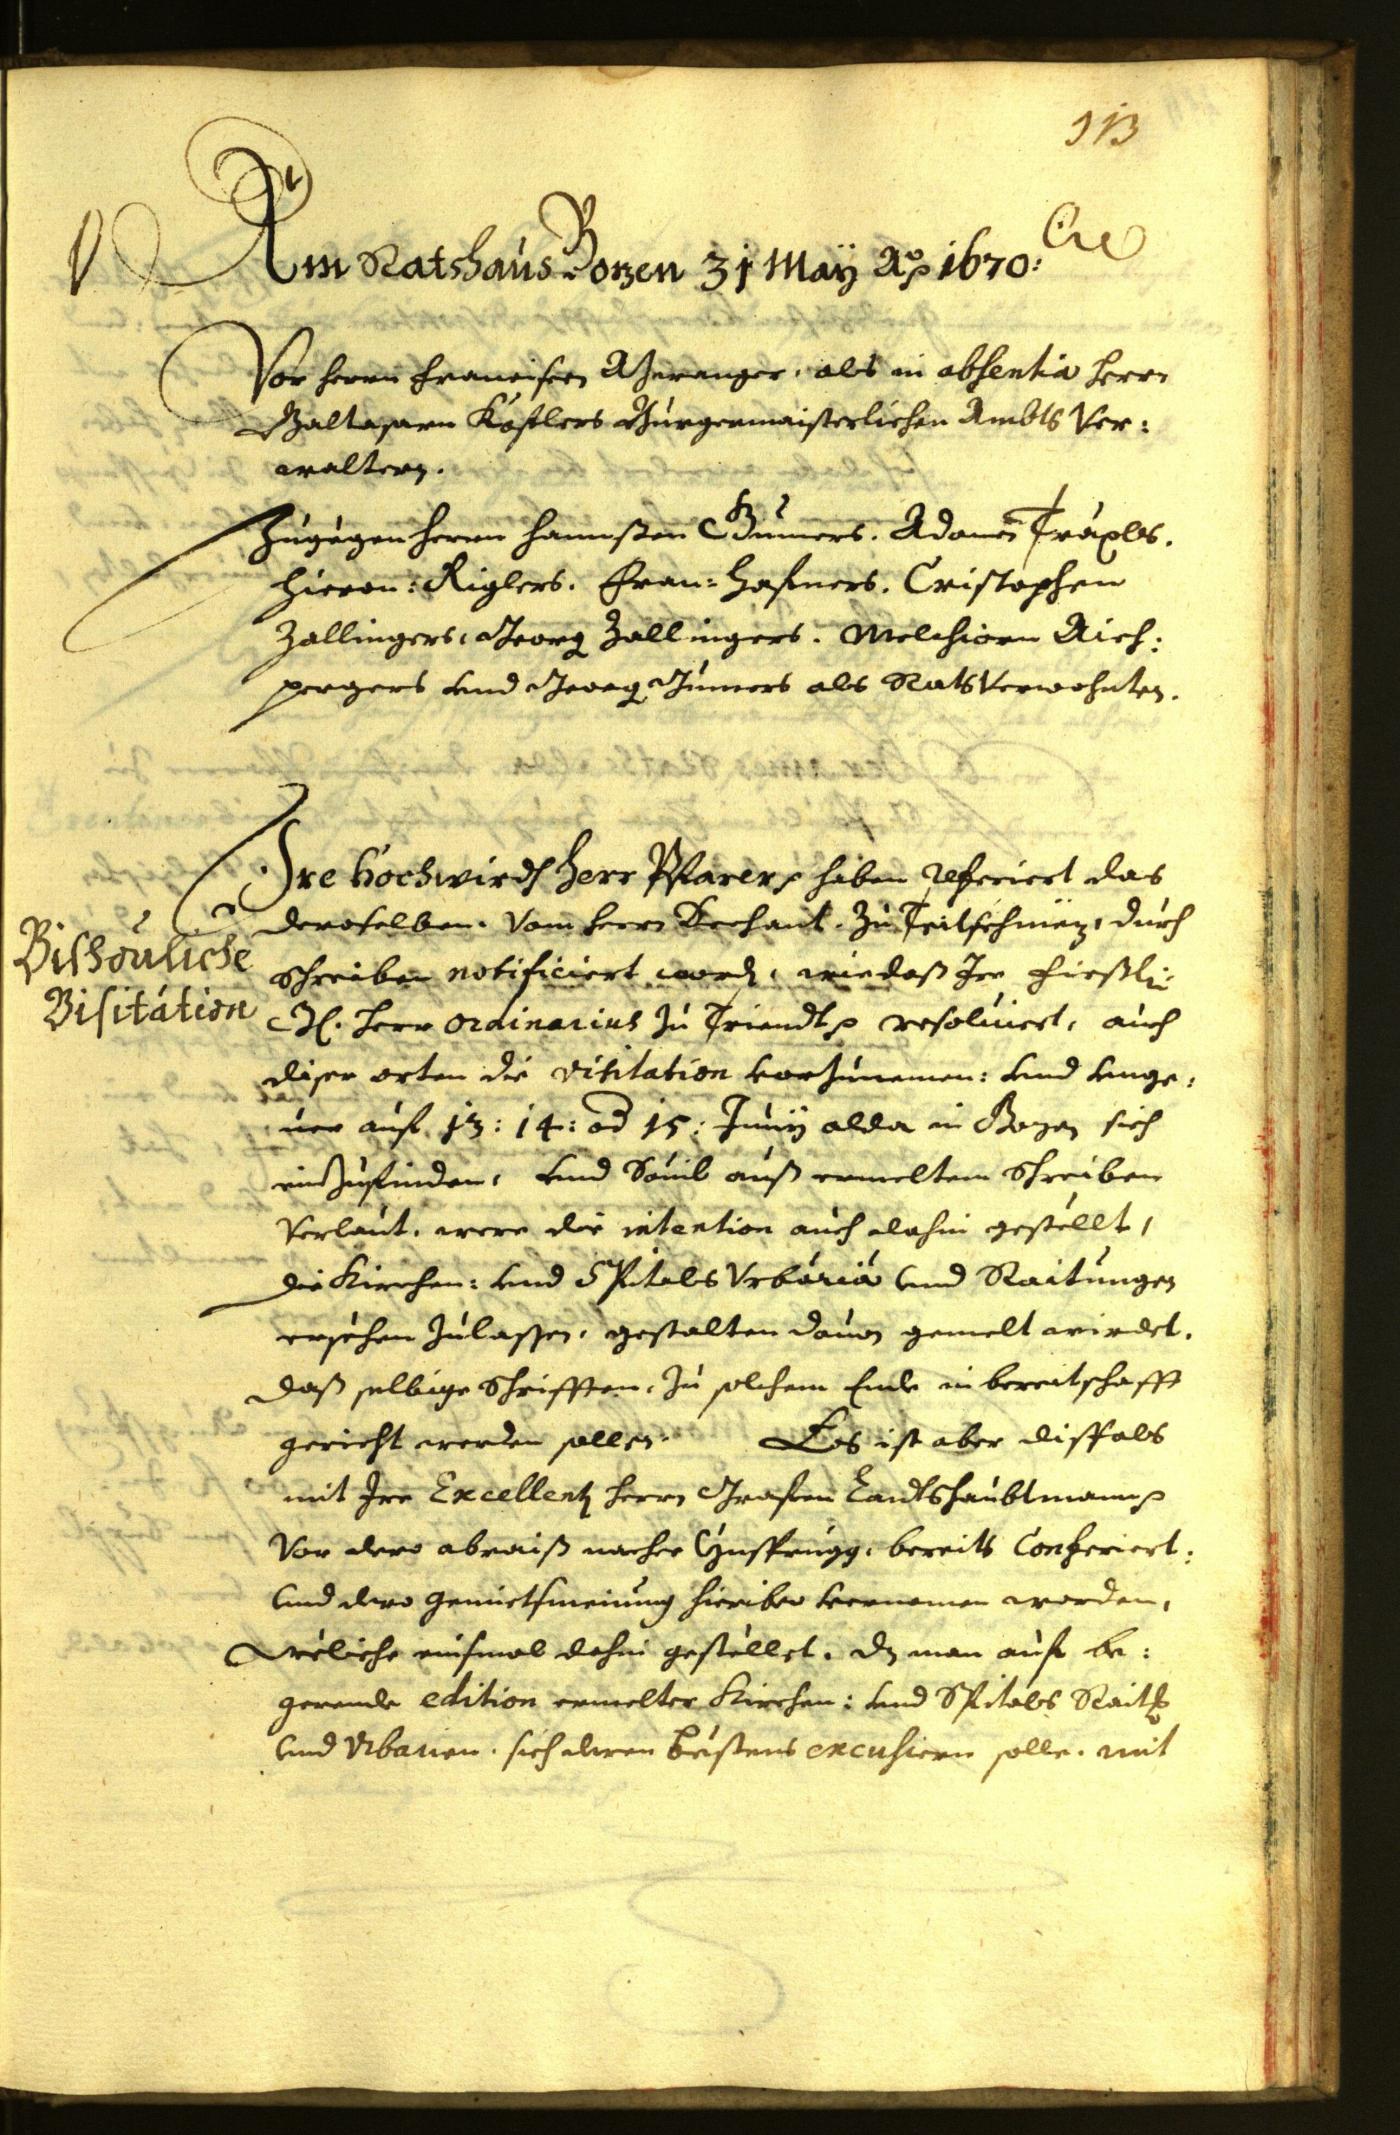 113
Am Ratshaus Botzen 31 Maÿ Ao 1670:
Vor Herrn Francisen Aheranger, als in absentia Herrn
Baltasarn Köstlers Burgermaisterlichen Ambts Ver:
waltern.
Zugegen Herrn Hannßen Gumers. Adamen Träxls.
Hieron: Riglers. Fran: Hafners. Cristophen
Zallingers, Georg Zallingers. Melchiorn Aich:
pergers vnd Georg Gumers als Rats Verwohnten.
Ire Hochwird Herr Pfarer haben referiert das
deroselben, vom Herrn Dechant zu Teitschmetz, durch
Schreiben notificiert word, wiedaß Ire Firstli:
G. Herr ordinarius zu Triendt resolviert, auch
diser orten die visitation vorzunemen: vnd vnge:
uer auf 13: 14: od 15: Junÿ alda in Bozen sich
einzufinden, vnd Souil auß ermeltem Schreiben
Verlaut, were die intention auch dahin gestellt,
die Kirchen: vnd Spitals Vrbaria vnd Raitungen
ersehen zulassen, gestalten dauon gemelt wirdet.
daß selbige Schrifften, zu solchem Ende in bereitschafft
gericht werden sollen. Es ist aber dissfals
mit Ire Excellentz Herrn Grafen Landtshaubtmann
Vor dero abraiß nacher Ynsprugg, bereits Conferiert:
vnd dero gemietsmeinung hieriber vernomen worden,
weliche einsmal dahin gestellet, dz man auf be:
gerende edition ermelter Kirchen: vnd Spitals Rait
vnd Vrbarien, sich deren böstens excusiern solle, mit
Bischouliche
Visitation